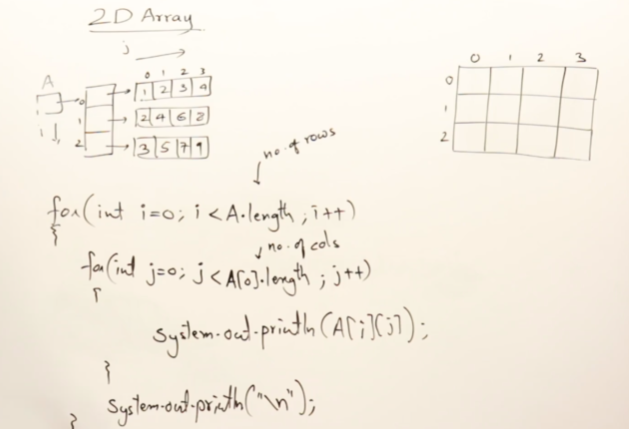 2D Array
j
0 1 2 3
0 1 2 3
A
0
1 2 3 4
0
1
2 4 6 8
1
i
2
3 5 7 9
2
no. of rows
for(int i=0; i<A.length; i++)
{
no. of cols
for(int j=0; j<A[0].length; j++)
{
System.out.println(A[i][j]);
}
System.out.println("\n");
}